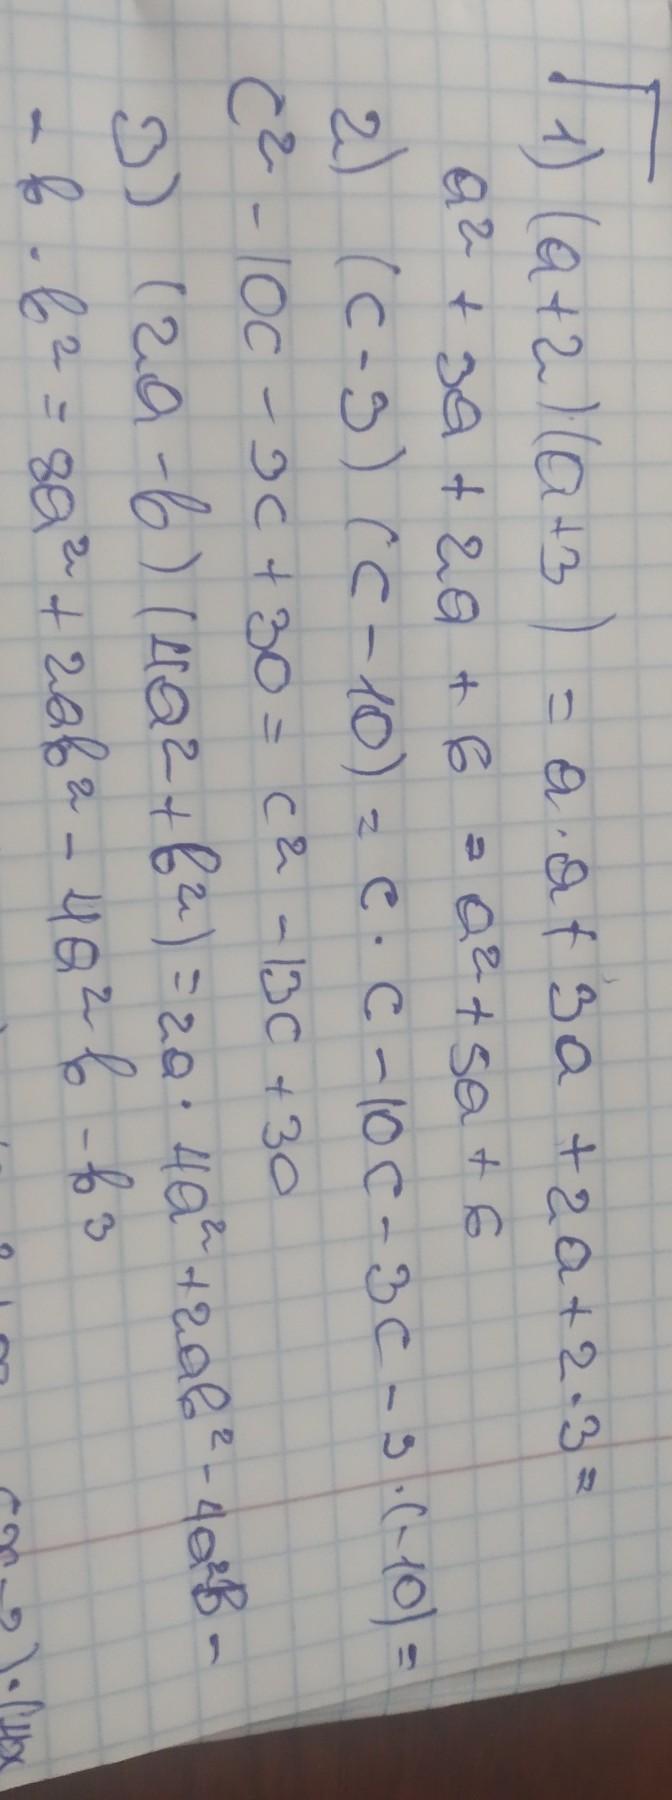 1) (a+2)(a+3) = a·a+3a+2a+2·3=
a²+3a+2a+6=a²+5a+6
2) (c-3)(c-10)=c·c-10c-3c-3·(-10)=
c²-10c-3c+30=c²-13c+30
3) (2a-b)(4a²+b²)=2a·4a²+2ab²-4a²b-
-b·b²=8a²+2ab²-4a²b-b³